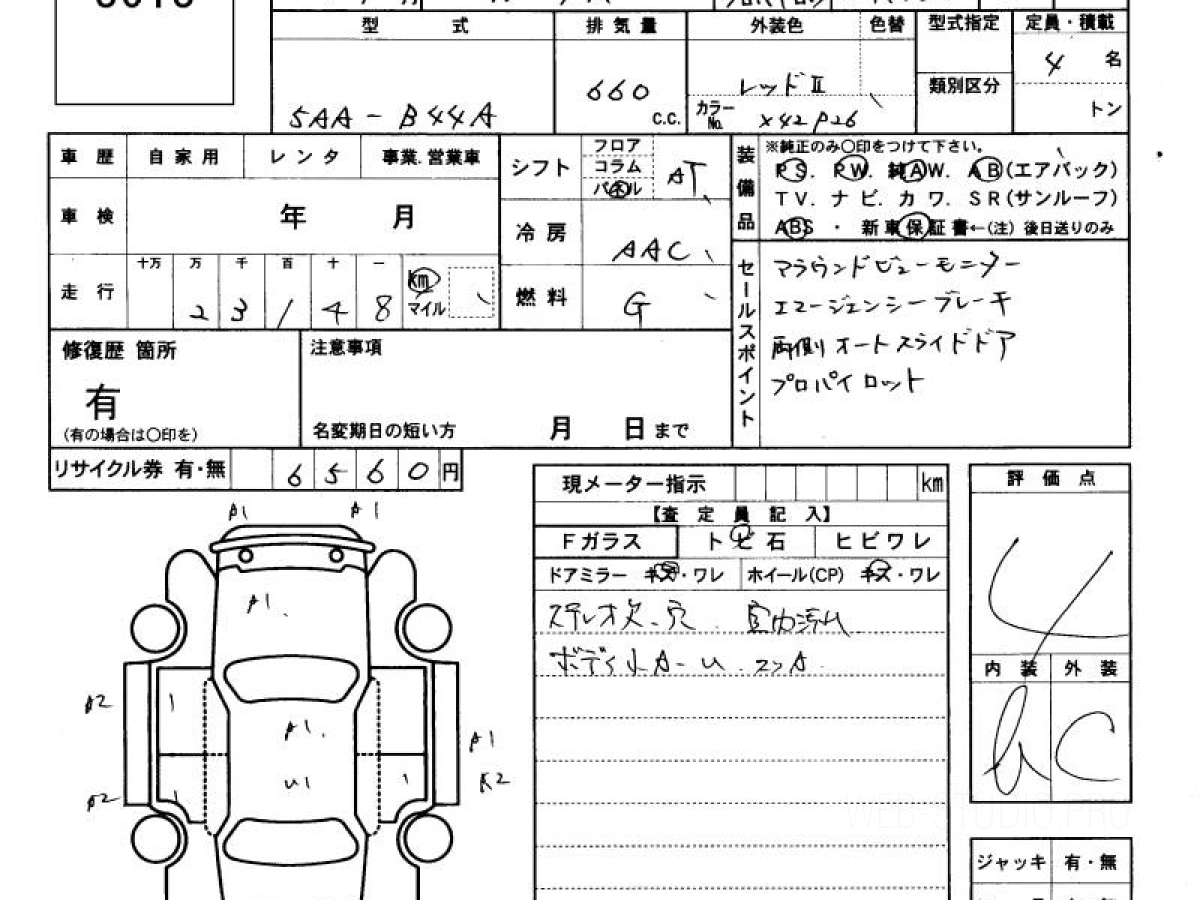 型 式 排気量 外装色 色替 型式指定 定員・積載
4 名
660 レッドⅡ 類別区分
5AA-B44A C.C. カラーNo. X42P26 トン
車歴 自家用 レンタ 事業・営業車 シフト フロア コラム パネル AT
装備品 ※純正のみ○印をつけて下さい。
PS. PW. 純AW. AB(エアバック)
車検 年 月 TV. ナビ. カワ. SR(サンルーフ)
冷房 AAC ABS ・ 新車保証書←(注) 後日送りのみ
走行 十万 万 千 百 十 一
2 3 1 4 8 km マイル
燃料 G
セールスポイント
アラウンドビューモニター
エマージェンシーブレーキ
両側オートスライドドア
プロパイロット
修復歴 箇所
有
(有の場合は○印を)
注意事項
名変期日の短い方 月 日まで
リサイクル券 有・無 6560円
現メーター指示 km
評価点
【査定員記入】
Fガラス トビ石 ヒビワレ
ドアミラー キズ・ワレ ホイール(CP) キズ・ワレ
ステレオ欠.穴. 室内汚れ
ボディ小A-U.コンA.
4
内装 外装
b C
A1 A1
A1.
A2
A1.
A1
U1
A2
A2
ジャッキ 有・無
WEB-STUDIO.PRO